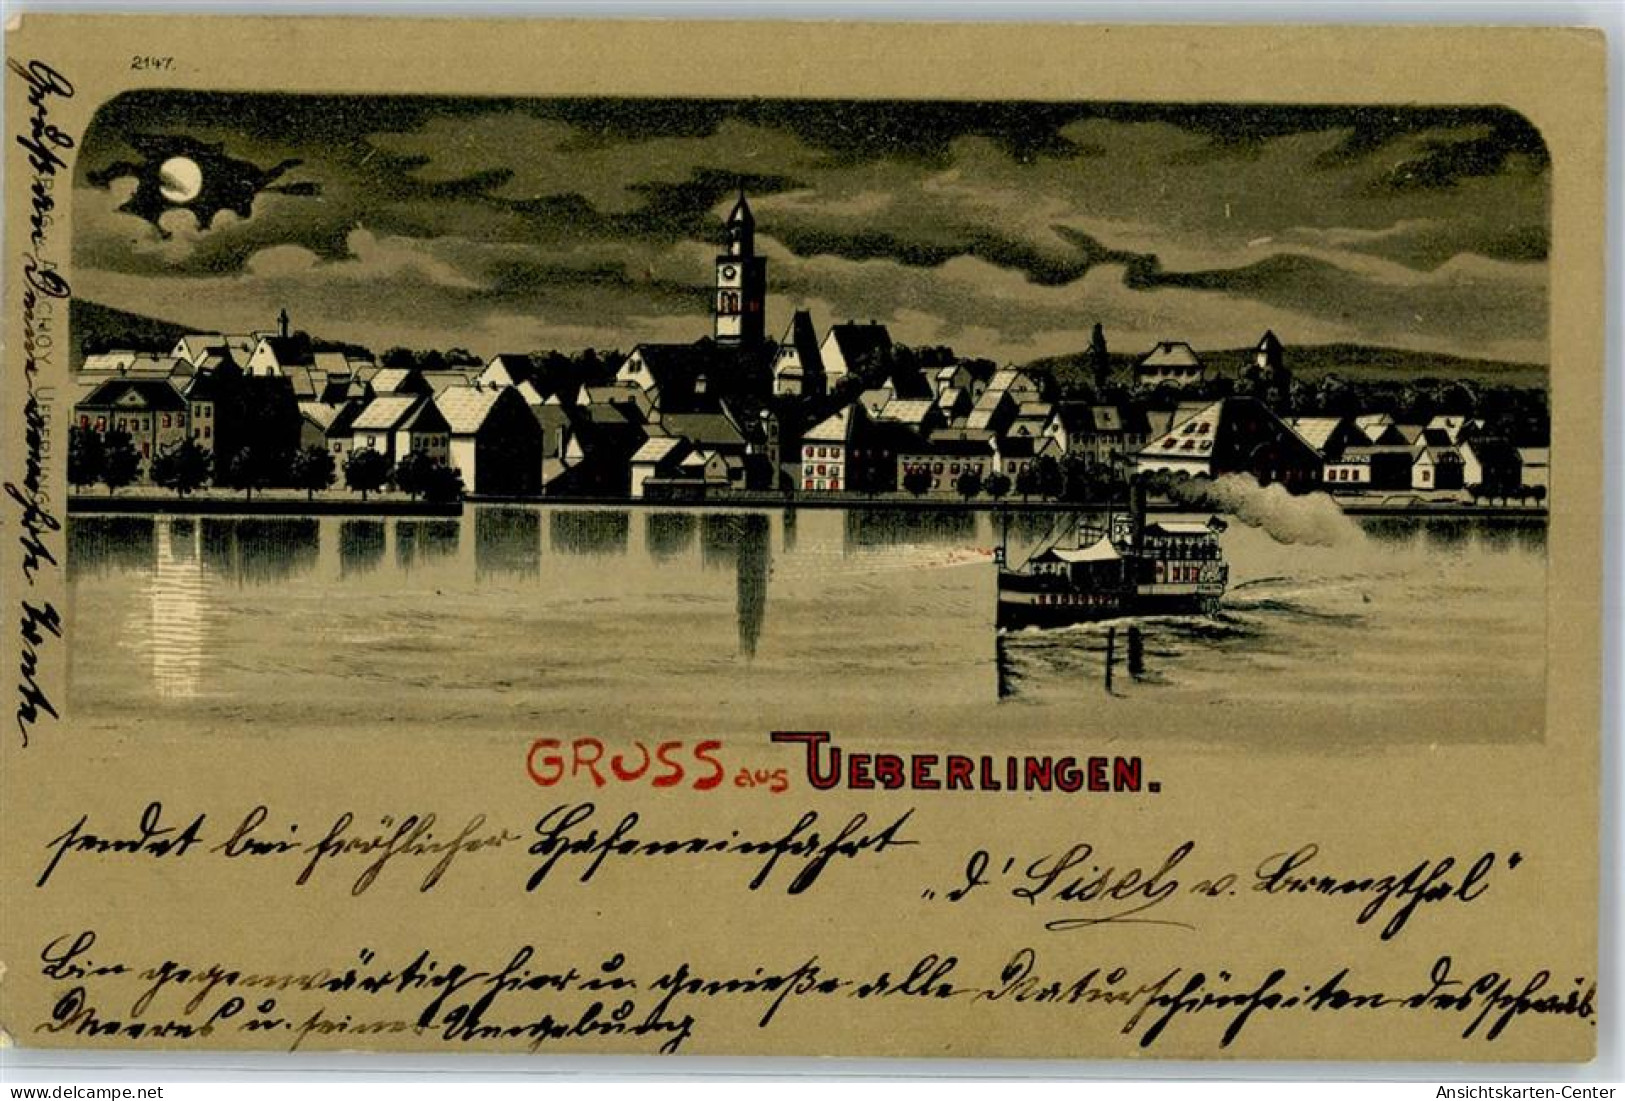 2147.
GRUSS aus UEBERLINGEN.
sendet bei fröhlicher Hafeneinfahrt
„d' Lisel v. Brenzthal"
Bin gegenwärtig hier u. genieße alle Naturschönheiten des schwäb.
Meeres u. seiner Umgebung
Grüßen
UEBERLINGEN
Ansichtskarten-Center